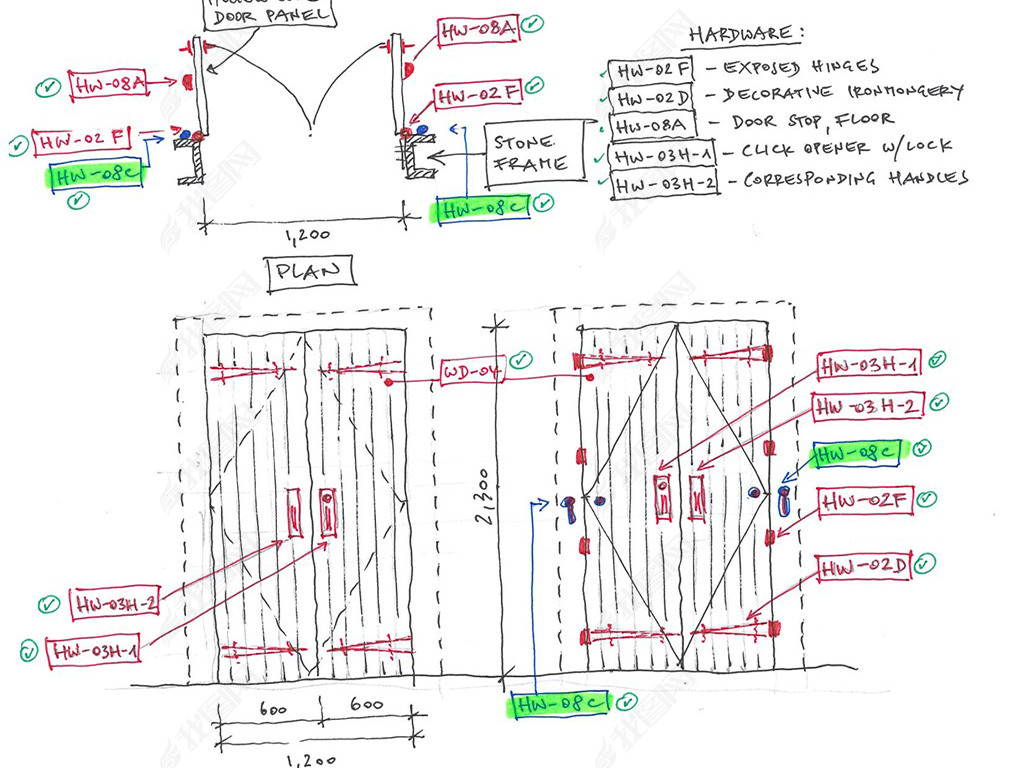 DOOR PANEL
HW-08A
HW-08A
HW-02F
HW-02F
HW-08C
HW-08C
STONE
FRAME
1,200
PLAN
HARDWARE:
HW-02F - EXPOSED HINGES
HW-02D - DECORATIVE IRONMONGERY
HW-08A - DOOR STOP, FLOOR
HW-03H-1 - CLICK OPENER W/LOCK
HW-03H-2 - CORRESPONDING HANDLES
WD-04
2,300
HW-03H-1
HW-03H-2
HW-08C
HW-02F
HW-02D
HW-03H-2
HW-03H-1
HW-08C
600
600
1,200